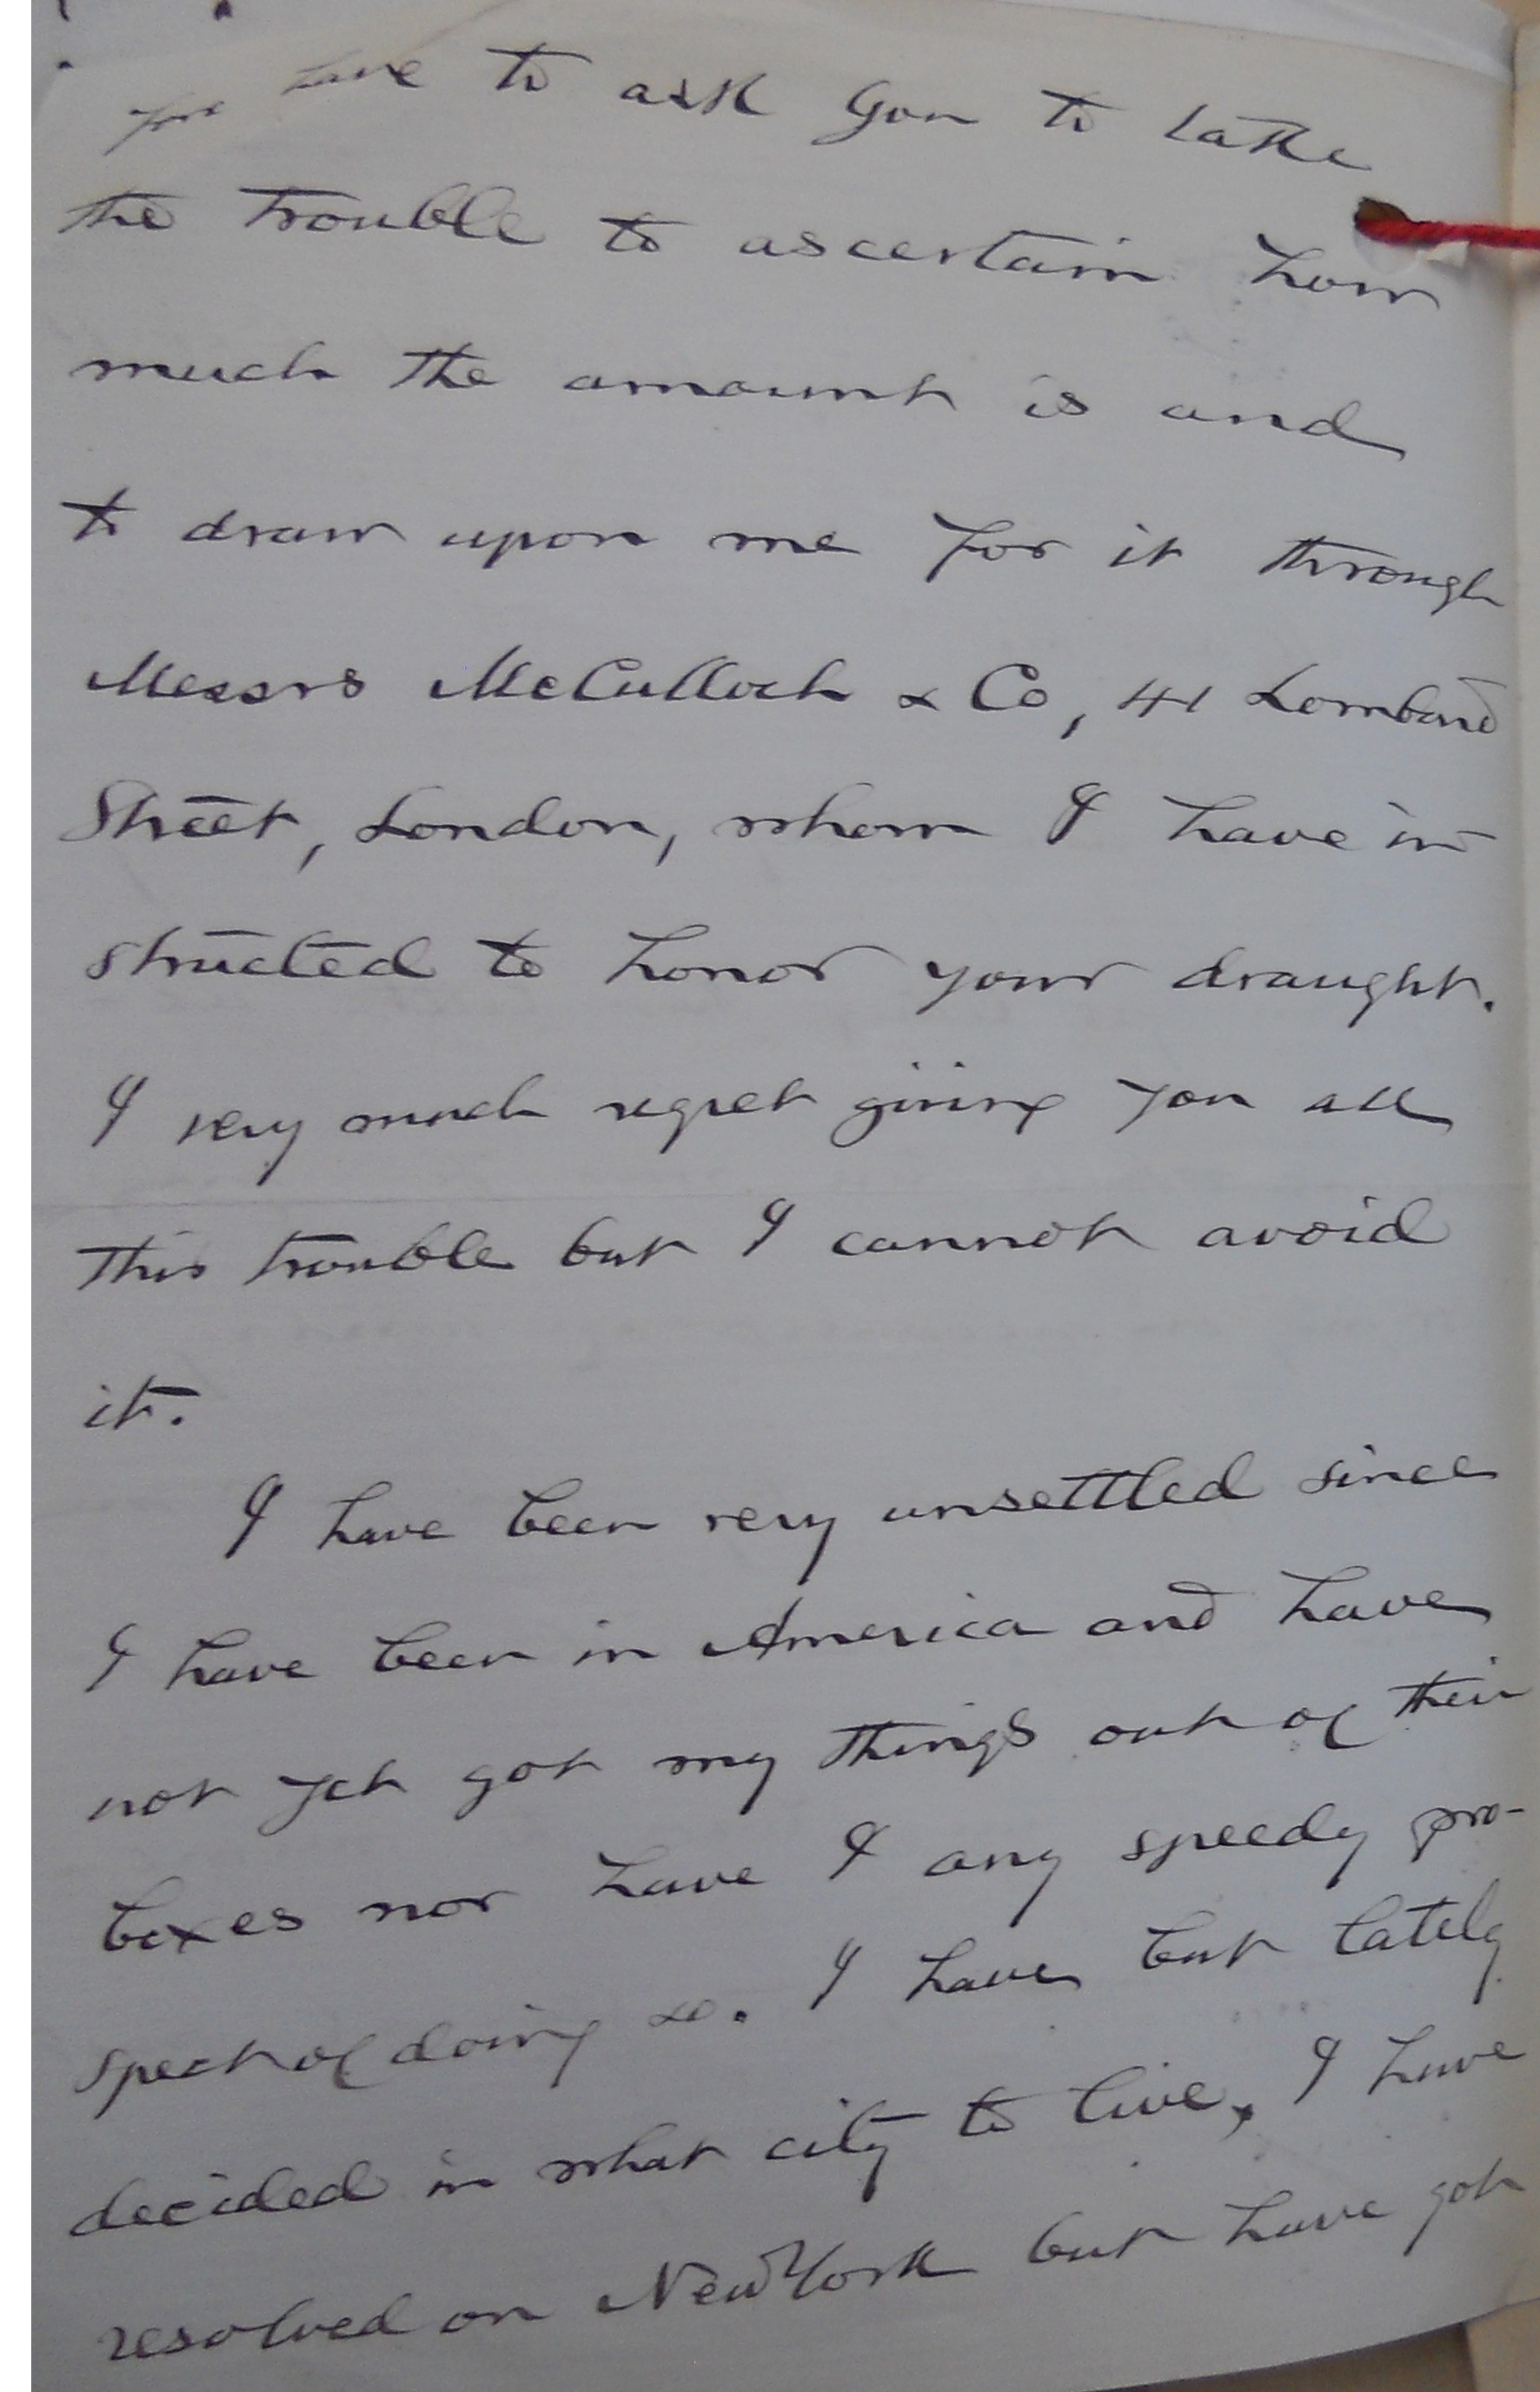 for have to ask you to take
the trouble to ascertain how
much the amount is and
to draw upon me for it through
Messrs McCulloch & Co, 41 Lombard
Street, London, whom I have in
structed to honor your draught.
I very much regret giving you all
this trouble but I cannot avoid
it.
I have been very unsettled since
I have been in America and have
not yet got my things out of their
boxes nor have I any speedy pro-
spect of doing so. I have but lately
decided in what city to live, I have
resolved on New York but have got